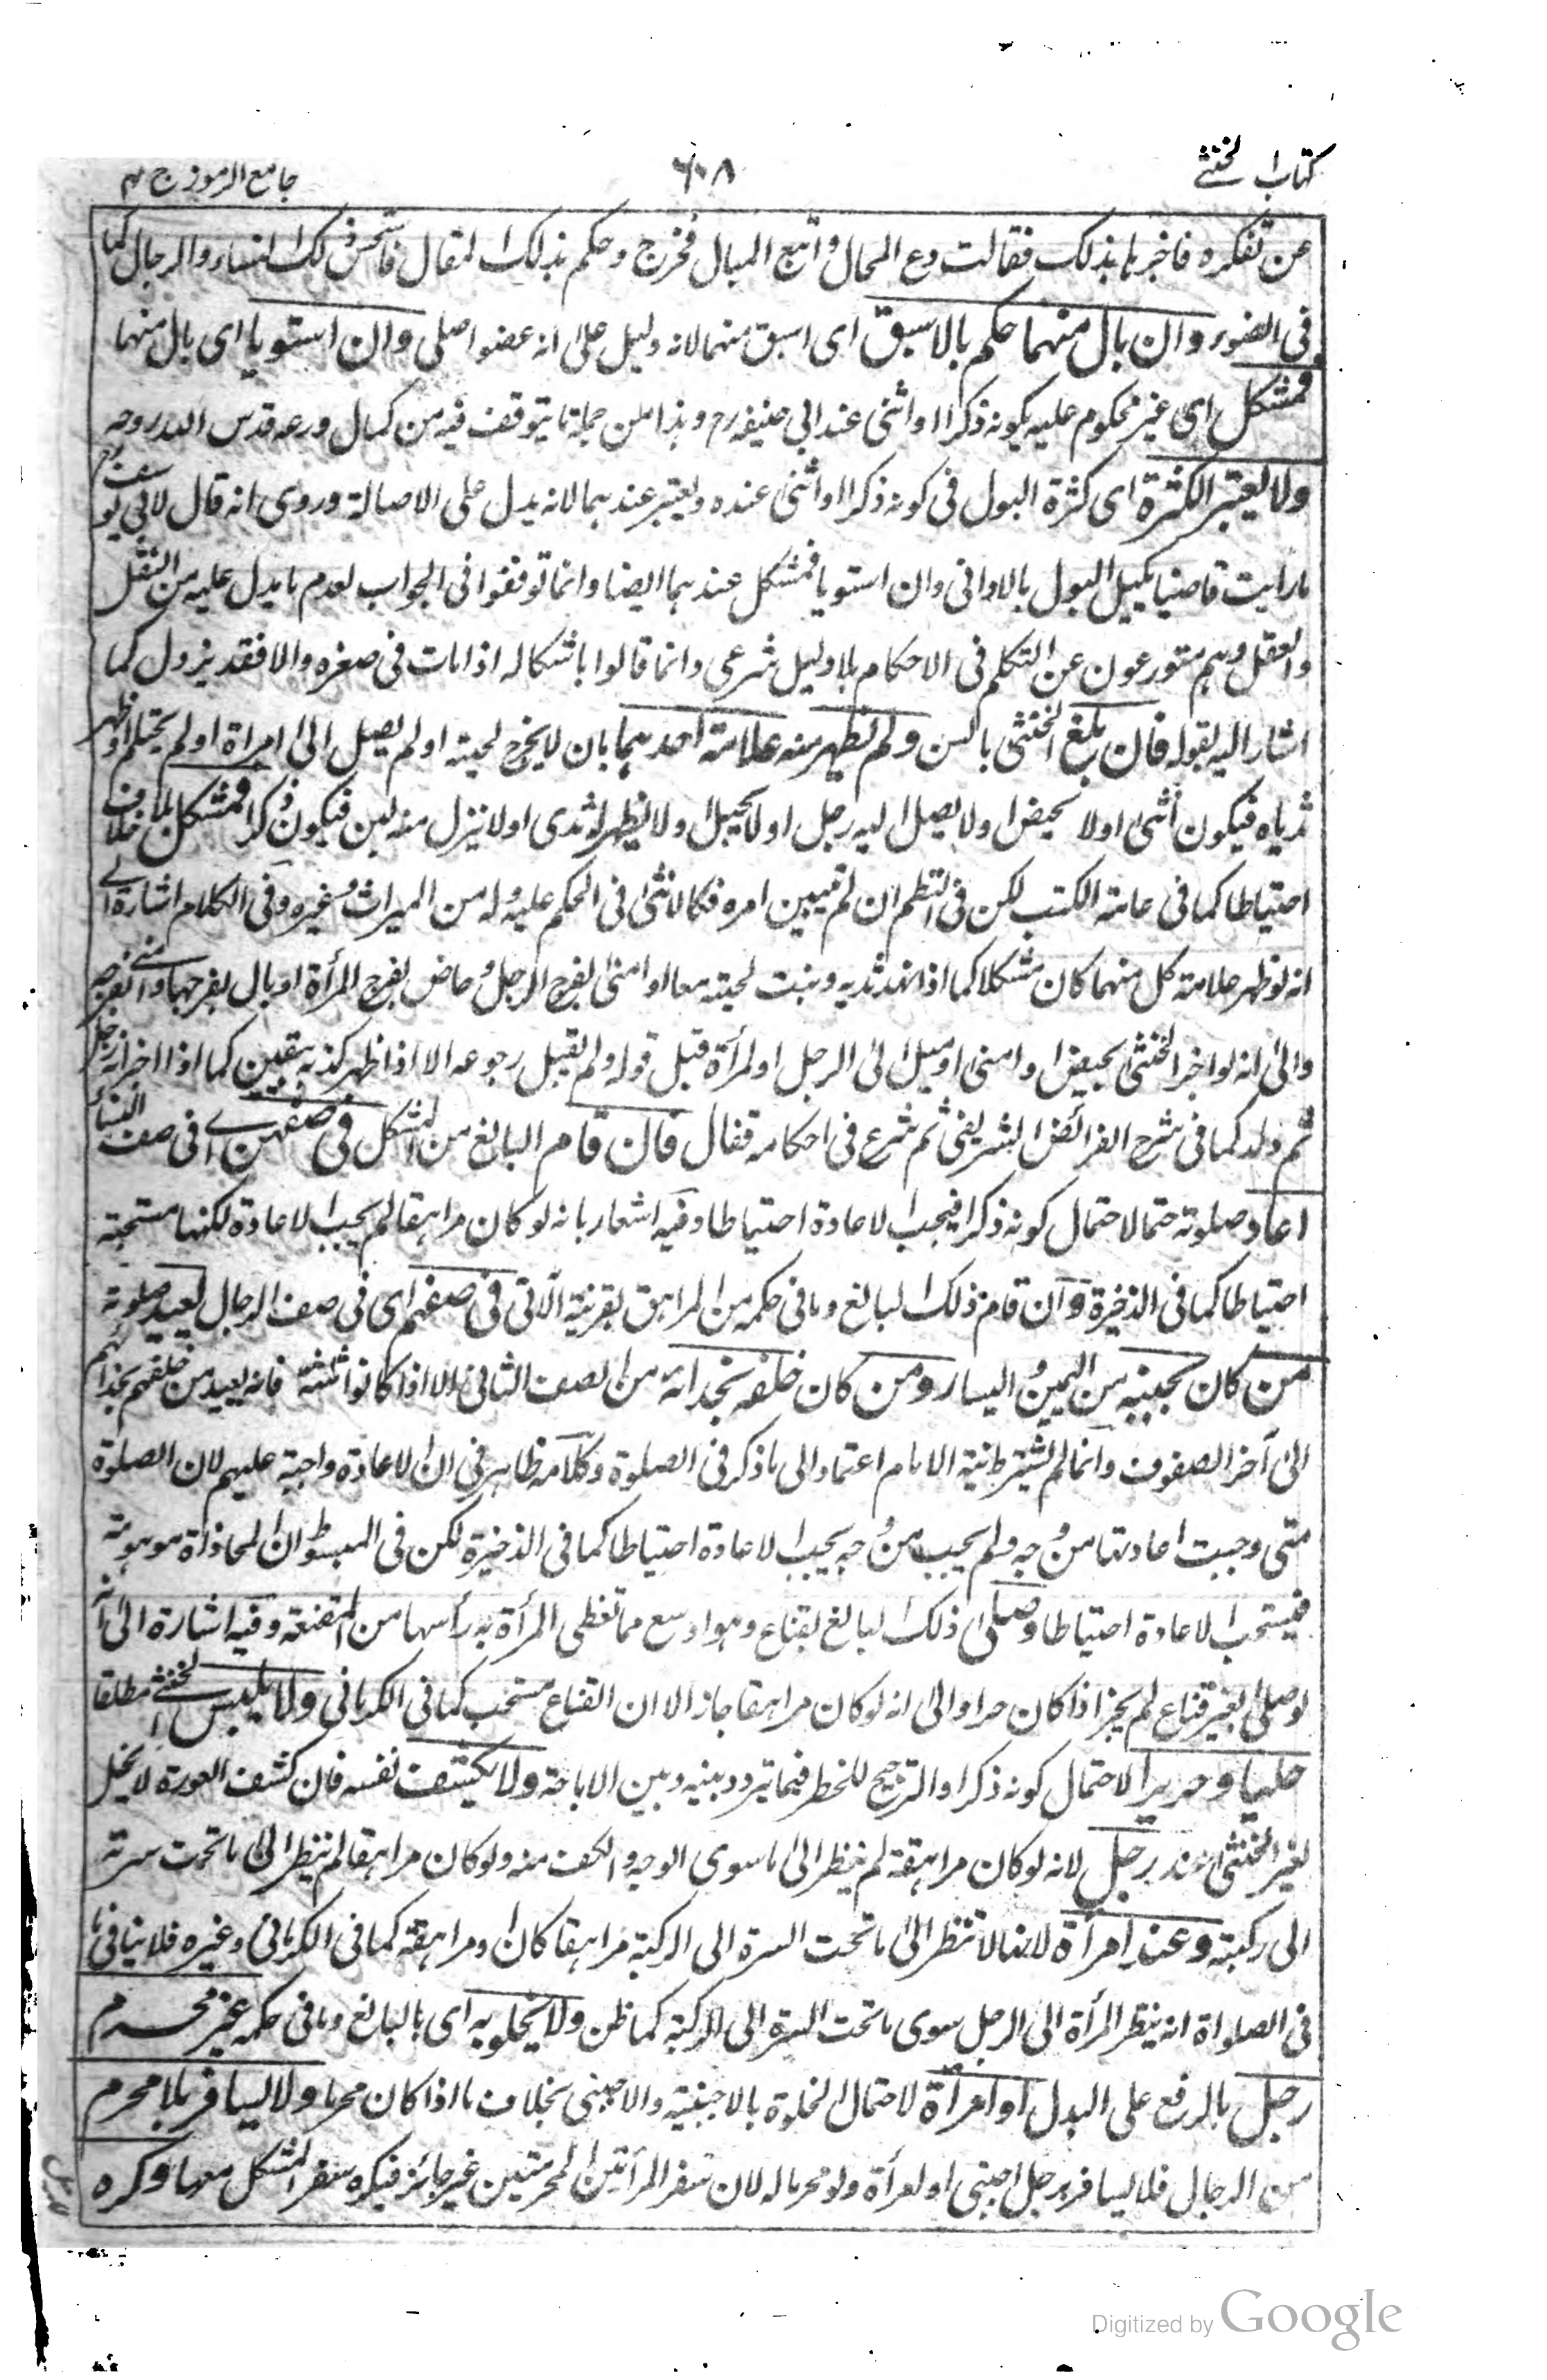 كتاب الخنثى
٦٠٨
جامع الرموز ج ٣
عن تفكره فاخبرها بذلك فقالت دع المحال واتبع المبال فخرج وحكم بذلك المقال فاستحسن ذلك النساء والرجال كما
فى الضوء وان بال منهما حكم بالاسبق اى اسبق منهما لانه دليل على انه عضو اصلى وان استويا اى بال منهما
فمشكل اى غير محكوم عليه بكونه ذكرا او انثى عند ابى حنيفه رح وهذا من جملة ما يتوقف فيه من كمال ورعه قدس الله روحه
ولا يعتبر الكثرة اى كثرة البول فى كونه ذكرا او انثى عنده ويعتبر عندهما لانه يدل على الاصالة وروى انه قال لابى يوسف رح
ما رايت قاضيا يكيل البول بالاوانى وان استويا فمشكل عندهما ايضا وانما توقفوا فى الجواب لعدم ما يدل عليه من النقل
والعقل وهم متورعون عن التكلم فى الاحكام بلا دليل شرعى وانما قالوا باشكاله اذا مات فى صغره والا فقد يزول كما
اشار اليه بقوله فان بلغ الخنثى بالسن ولم تظهر منه علامة احدهما بان لا يخرج لحيته او لم يصل الى امراة او لم يحتلم او ظهر
ثدياه فيكون انثى او لا يحيض او لا يصل اليه رجل او لا يحبل او لا يظهر له ثدى او لا ينزل منه لبن فيكون ذكرا فمشكل بلا خلاف
احتياطا كما فى عامة الكتب لكن فى النظم ان لم تبين امره فكالانثى فى الحكم عليه وله من الميراث وغيره وفى الكلام اشارة الى
انه لو ظهر علامة كل منهما كان مشكلا كما اذا نهد ثديه ونبت لحيته معا او امنى بفرج الرجل وحاض بفرج المرأة او بال بفرجها وامنى بفرجه
والى انه لو اخبر الخنثى بحيض او امنى او ميل الى الرجل او المرأة قبل قوله ولم يقبل رجوعه الا اذا ظهر كذبه بيقين كما اذا اخبر انه رجل
ثم ولد كما فى شرح الفرائض الشريفى ثم شرع فى احكامه فقال فان قام البالغ من المشكل فى صفهن اى فى صف النساء
اعاد صلوته حتما لاحتمال كونه ذكرا فيجب الاعادة احتياطا وفيه اشعار بانه لو كان مراهقا لم يجب الاعادة لكنها مستحبة
احتياطا كما فى الذخيرة وان قام ذلك البالغ وما فى حكمه من المراهق بقرينة الآتى فى صفهم اى فى صف الرجال يعيد صلوته
من كان بجنبيه من اليمين واليسار ومن كان خلفه بحذائه من الصف الثانى الا اذا كانوا ثلثة فانه يعيد من خلفهم بحذائهم
الى آخر الصفوف وانما لم يشترط نية الامام اعتمادا الى ما ذكر فى الصلوة وكلامه ظاهر فى ان الاعادة واجبة عليهم لان الصلوة
متى وجبت اعادتها من وجه ولم يجب من وجه يجب الاعادة احتياطا كما فى الذخيرة لكن فى المبسوط ان المحاذاة موهومة
فيستحب الاعادة احتياطا وصلى ذلك البالغ بقناع وهو اوسع مما تغطى المرأة به رأسها من المقنعة وفيه اشارة الى انه
لو صلى بغير قناع لم يجز اذا كان حرا والى انه لو كان مراهقا جاز الا ان القناع مستحب كما فى الكرمانى ولا يلبس الخنثى مطلقا
حليا وحريرا لاحتمال كونه ذكرا والترجيح للحظر فيما تردد بينه وبين الاباحة ولا يكشف نفسه فان كشف العورة لا يحل
لغير الخنثى عند رجل لانه لو كان مراهقة لم ينظر الى ما سوى الوجه والكف منه ولو كان مراهقا لم ينظر الى ما تحت سرته
الى ركبته وعند امرأة لانها لا تنظر الى ما تحت السرة الى الركبة مراهقا كان او مراهقة كما فى الكرمانى وغيره فلا ينافى ما
فى الصلواة انه ينظر المرأة الى الرجل سوى ما تحت السرة الى الركبة كما ظن ولا يخلو به اى بالبالغ وما فى حكمه غير محرم
رجل بالرفع على البدل او امرأة لاحتمال الخلوة بالاجنبية والاجنبى بخلاف ما اذا كان محرما ولا يسافر بلا محرم
من الرجال فلا يسافر برجل اجنبى او امرأة ولو محرما له لان سفر المرأتين المحرمتين غير جائز فيكره سفر المشكل معها وكره
Digitized by Google